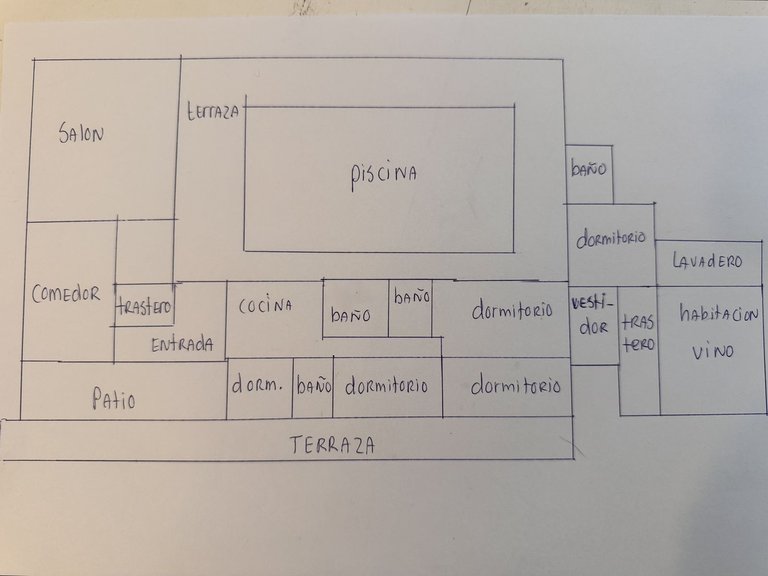 SALON
tERRAZA
PISCINA
bAÑO
dormitorio
LAVAdERO
COMEdOR
tRASTERO
ENtRAdA
COCINA
bAÑO
bAÑO
dormitorio
VESti-
dOR
tRAS
tERO
hAbitACION
VINO
PAtiO
dORM.
bAÑO
dORMitORiO
dormitorio
TERRAZA